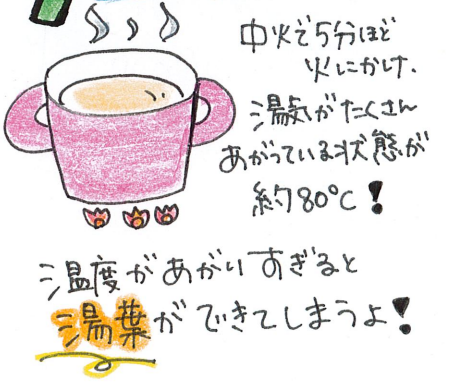 中火で5分ほど
火にかけ、
湯気がたくさん
あがっている状態が
約80℃!
温度があがりすぎると
湯葉ができてしまうよ!